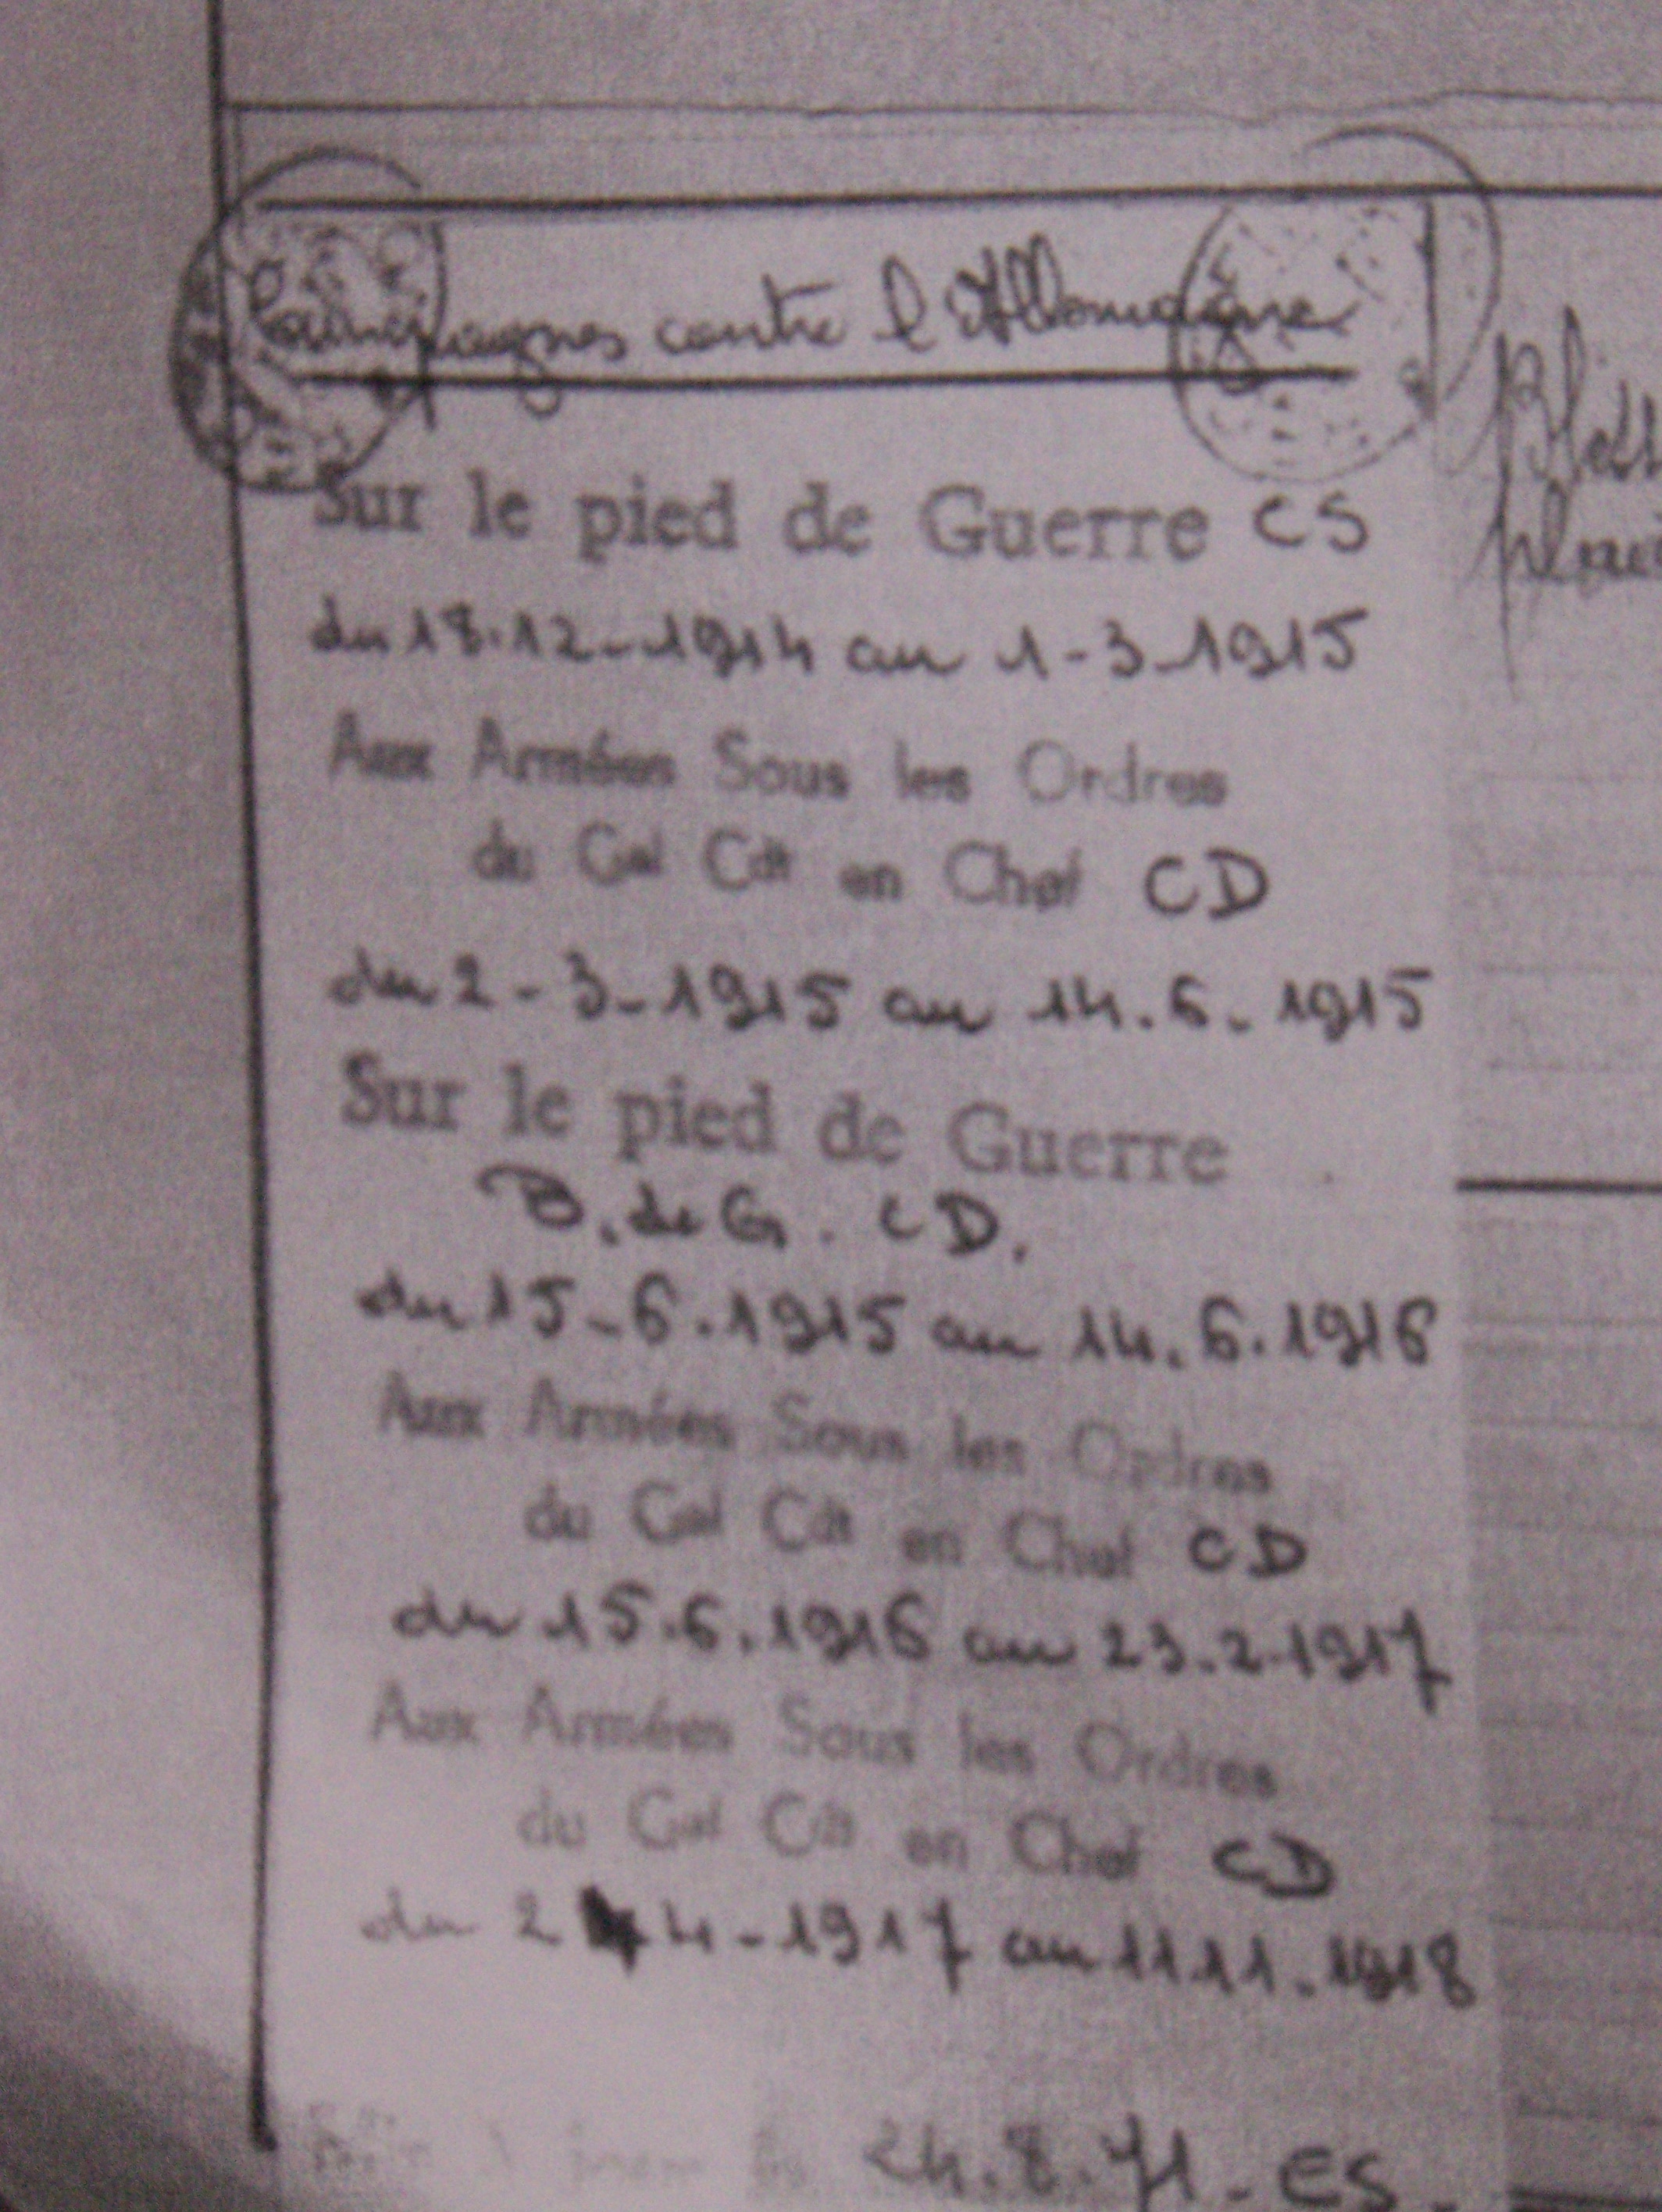 Campagnes contre l'Allemagne
Sur le pied de Guerre CS
du 18.12-1914 au 1-3-1915
Aux Armées Sous les Ordres
du Gal Cdt en Chef CD
du 2-3-1915 au 14.6.1915
Sur le pied de Guerre
B. de G. CD.
du 15-6.1915 au 14.6.1916
Aux Armées Sous les Ordres
du Gal Cdt en Chef CD
du 15.6.1916 au 23.2-1917
Aux Armées Sous les Ordres
du Gal Cdt en Chef CD
du 2 4-1917 au 11 11.1918
24.8.71-ES